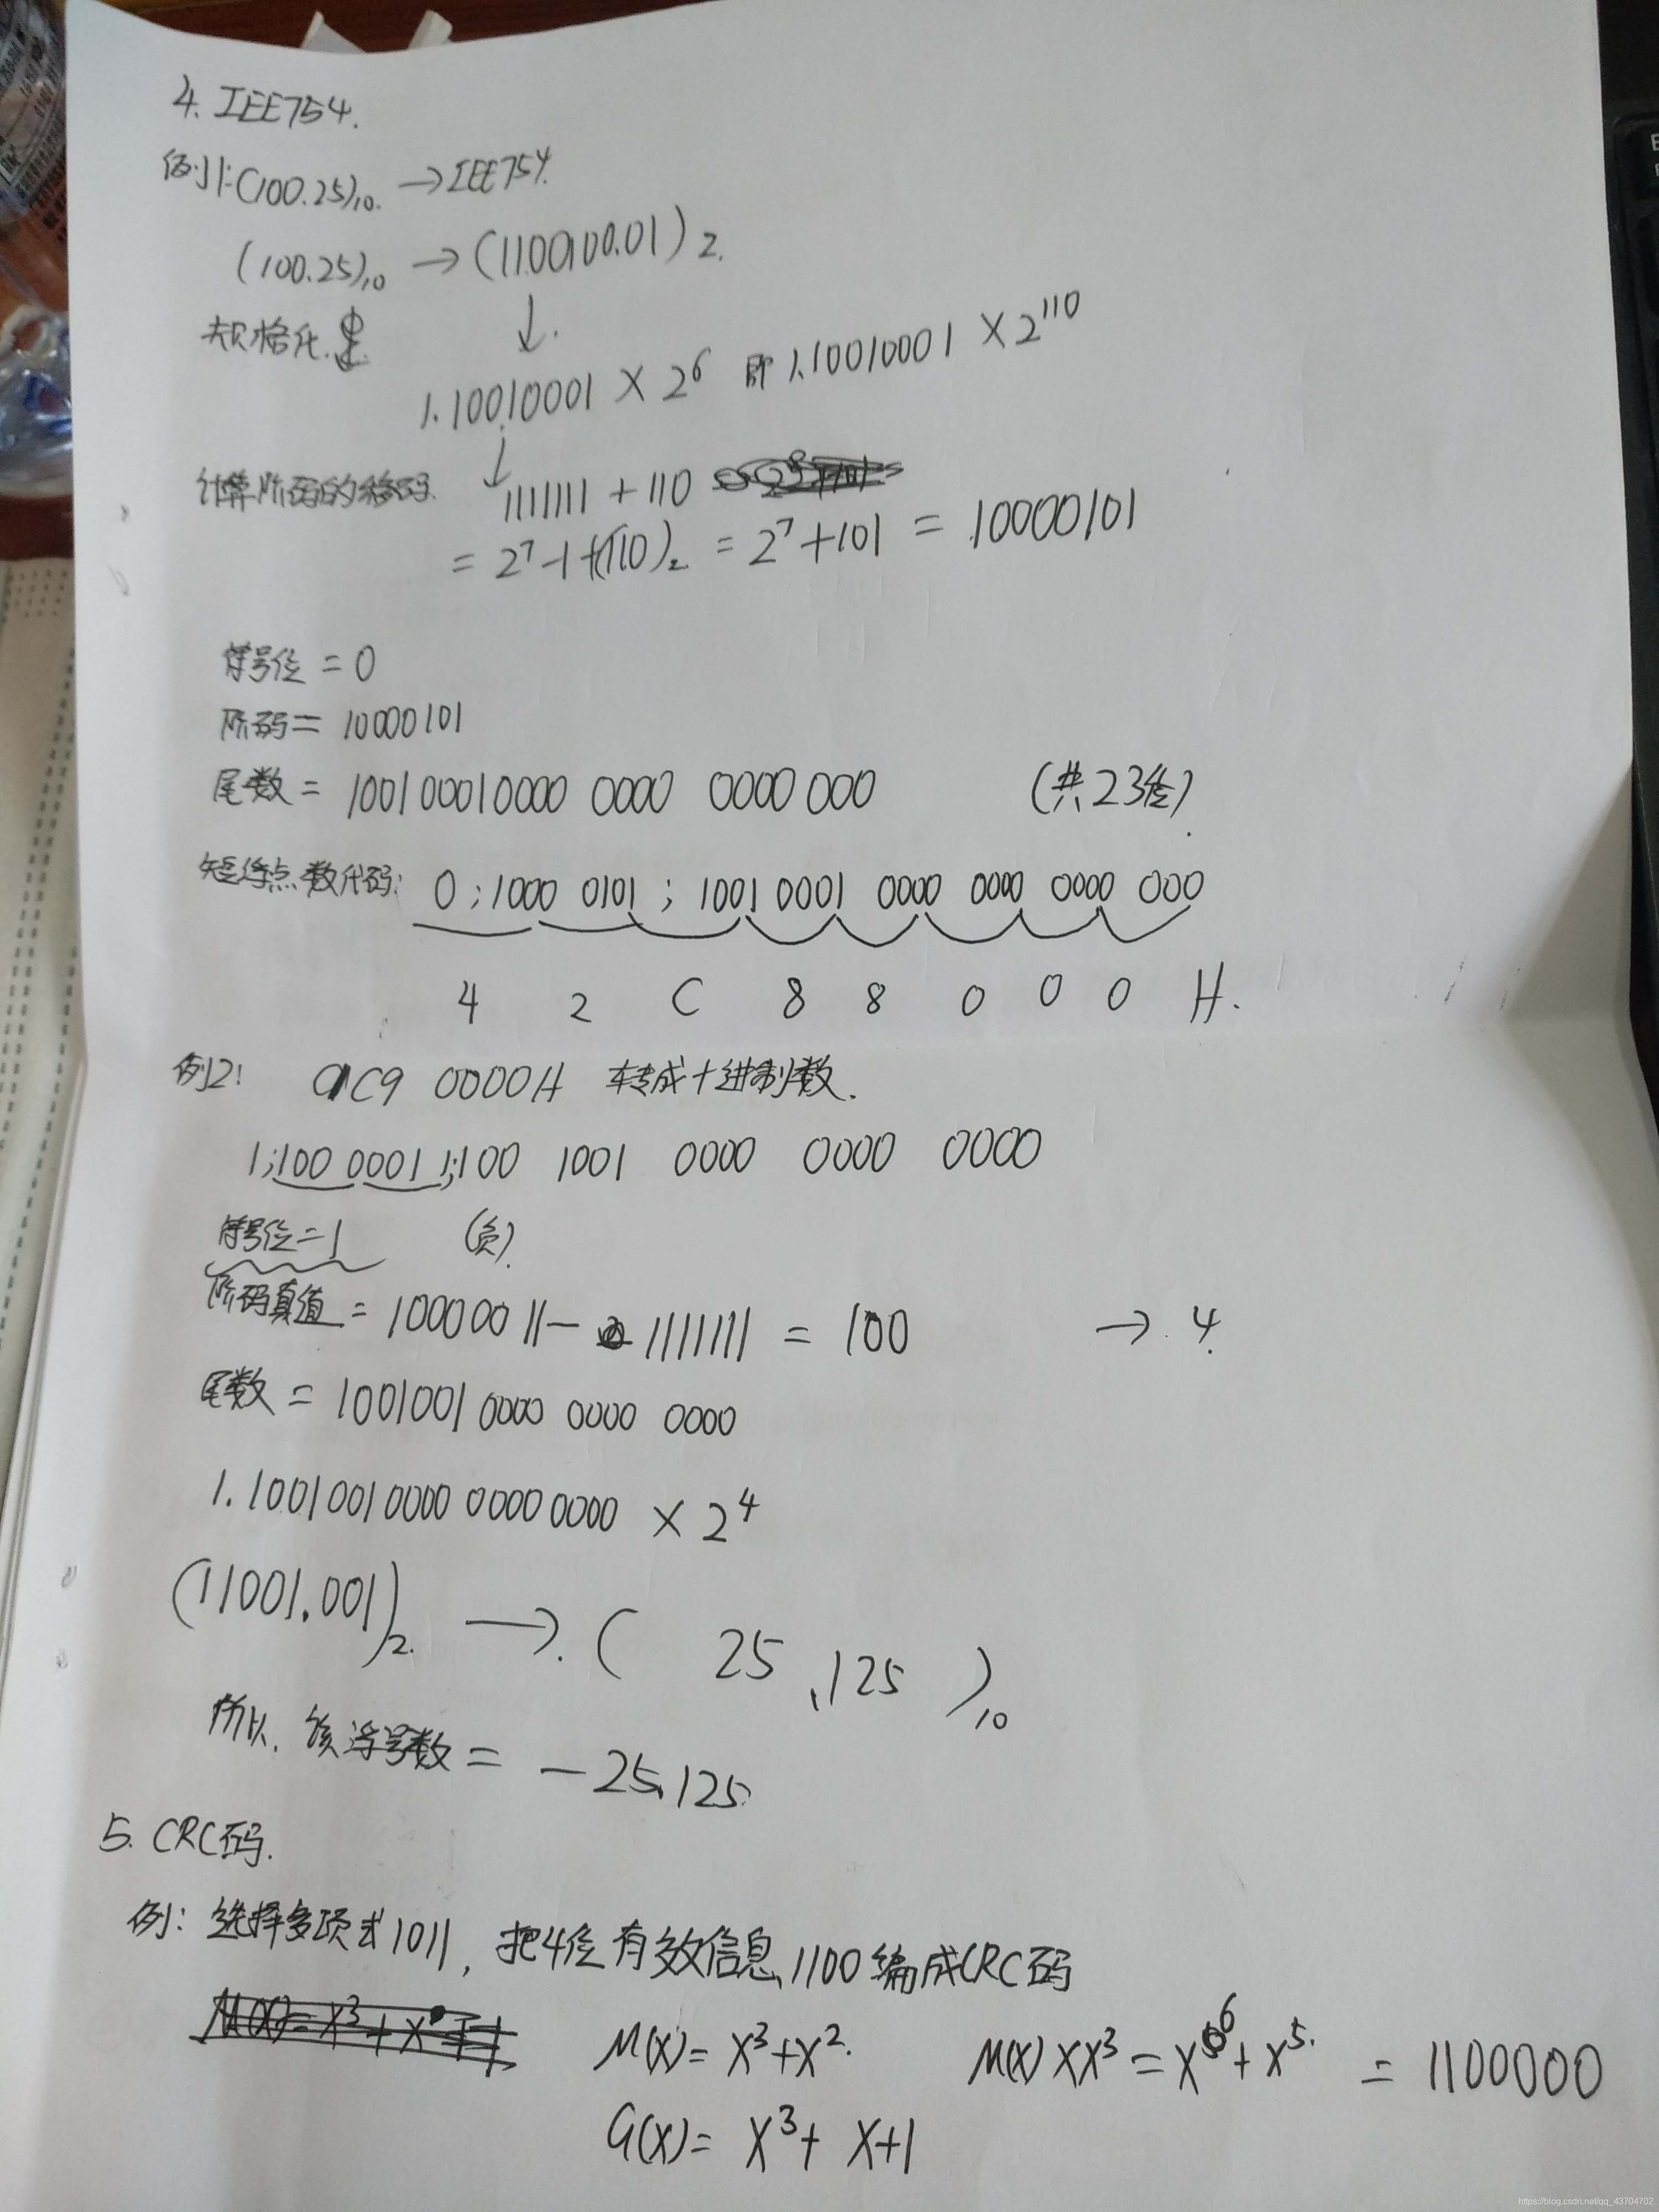 4. IEE754.
例1:(100.25)10. → IEE754.
(100.25)10 → (1100100.01)2.
规格化. ↓.
1.10010001 × 2^6 即 1.10010001 × 2^110
↓
计算阶码的移码. 1111111 + 110
= 2^7-1+(110)2 = 2^7+101 = 10000101
符号位 = 0
阶码 = 10000101
尾数 = 100100010000 0000 0000 000 (共23位).
短浮点数代码: 0;1000 0101 ; 1001 0001 0000 0000 0000 000
4 2 C 8 8 0 0 0 H.
例2: C1C9 0000H 转成十进制数.
1;100 0001 1;100 1001 0000 0000 0000
符号位=1 (负).
阶码真值 = 10000011 - 1111111 = 100 → 4.
尾数 = 1001001 0000 0000 0000
1.1001001 0000 0000 0000 × 2^4
(11001.001)2. →. ( 25.125 )10
所以, 该浮号数 = -25.125.
5. CRC码.
例: 选择多项式1011, 把4位有效信息1100编成CRC码
M(X)= X^3+X^2. M(X)×X^3 = X^6+X^5. = 1100000
G(X)= X^3+ X+1
https://blog.csdn.net/qq_43704702